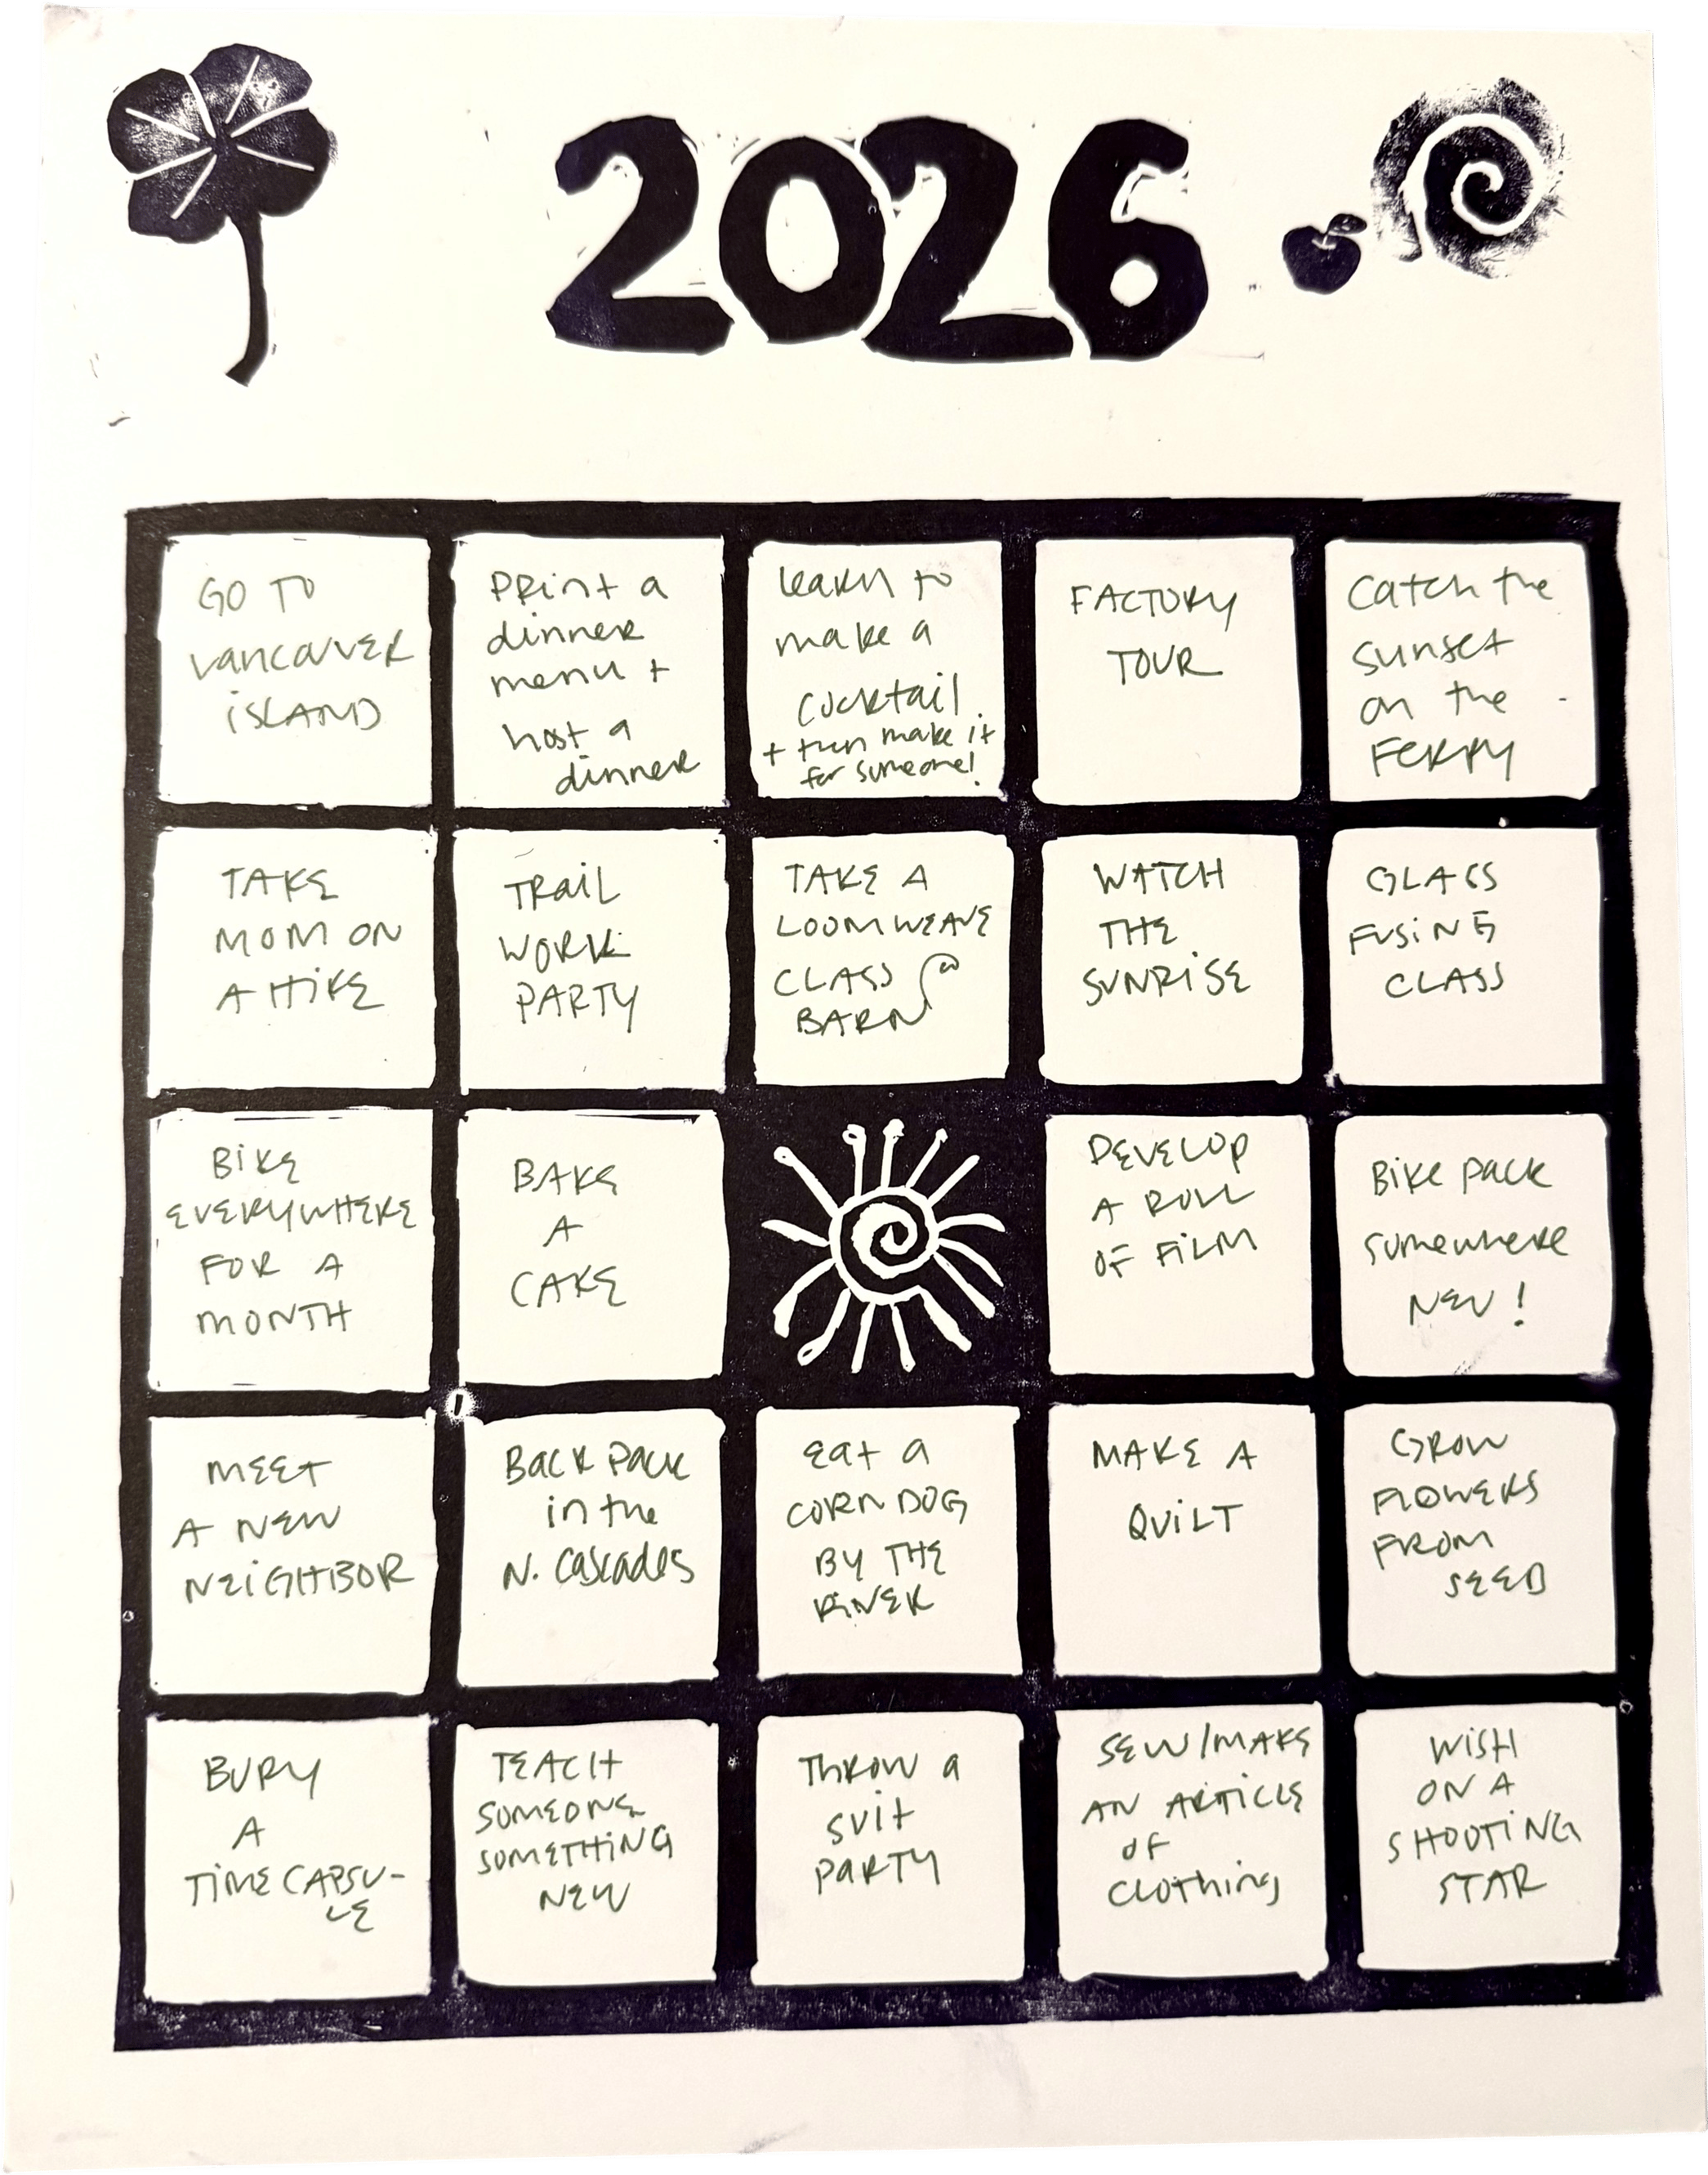 2026
GO TO
VANCOUVER
ISLAND
PRINT a
dinner
menu +
host a
dinner
learn to
make a
cocktail
+ then make it
for someone!
FACTORY
TOUR
Catch the
sunset
on the
FERRY
TAKE
MOM ON
A HIKE
TRAIL
WORK
PARTY
TAKE A
LOOM WEAVE
CLASS @
BARN
WATCH
THE
SUNRISE
GLASS
FUSING
CLASS
BIKE
EVERYWHERE
FOR A
MONTH
BAKE
A
CAKE
DEVELOP
A ROLL
OF FILM
BIKE PACK
somewhere
NEW!
MEET
A NEW
NEIGHBOR
BACK PACK
in the
N. Cascades
eat a
CORN DOG
BY THE
RIVER
MAKE A
QUILT
GROW
FLOWERS
FROM
SEED
BURY
A
TIME CAPSU-
LE
TEACH
SOMEONE
SOMETHING
NEW
THROW a
suit
PARTY
SEW/MAKE
AN ARTICLE
OF
Clothing
WISH
ON A
SHOOTING
STAR